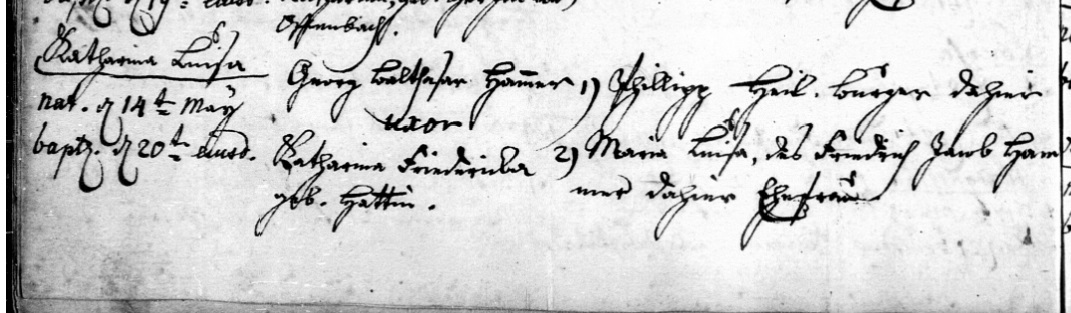 Offenbach.
Katharina Luisa
nat. d 14t May
baptz. d 20t eiusd.
Georg Balthasar Ham̄er
uxor
Katharina Friedericka
geb. Hattin.
1) Phillipp Heil. bürger dahier
2) Maria Luisa, des Friedrich Jacob Ham
mer dahier Ehefrau